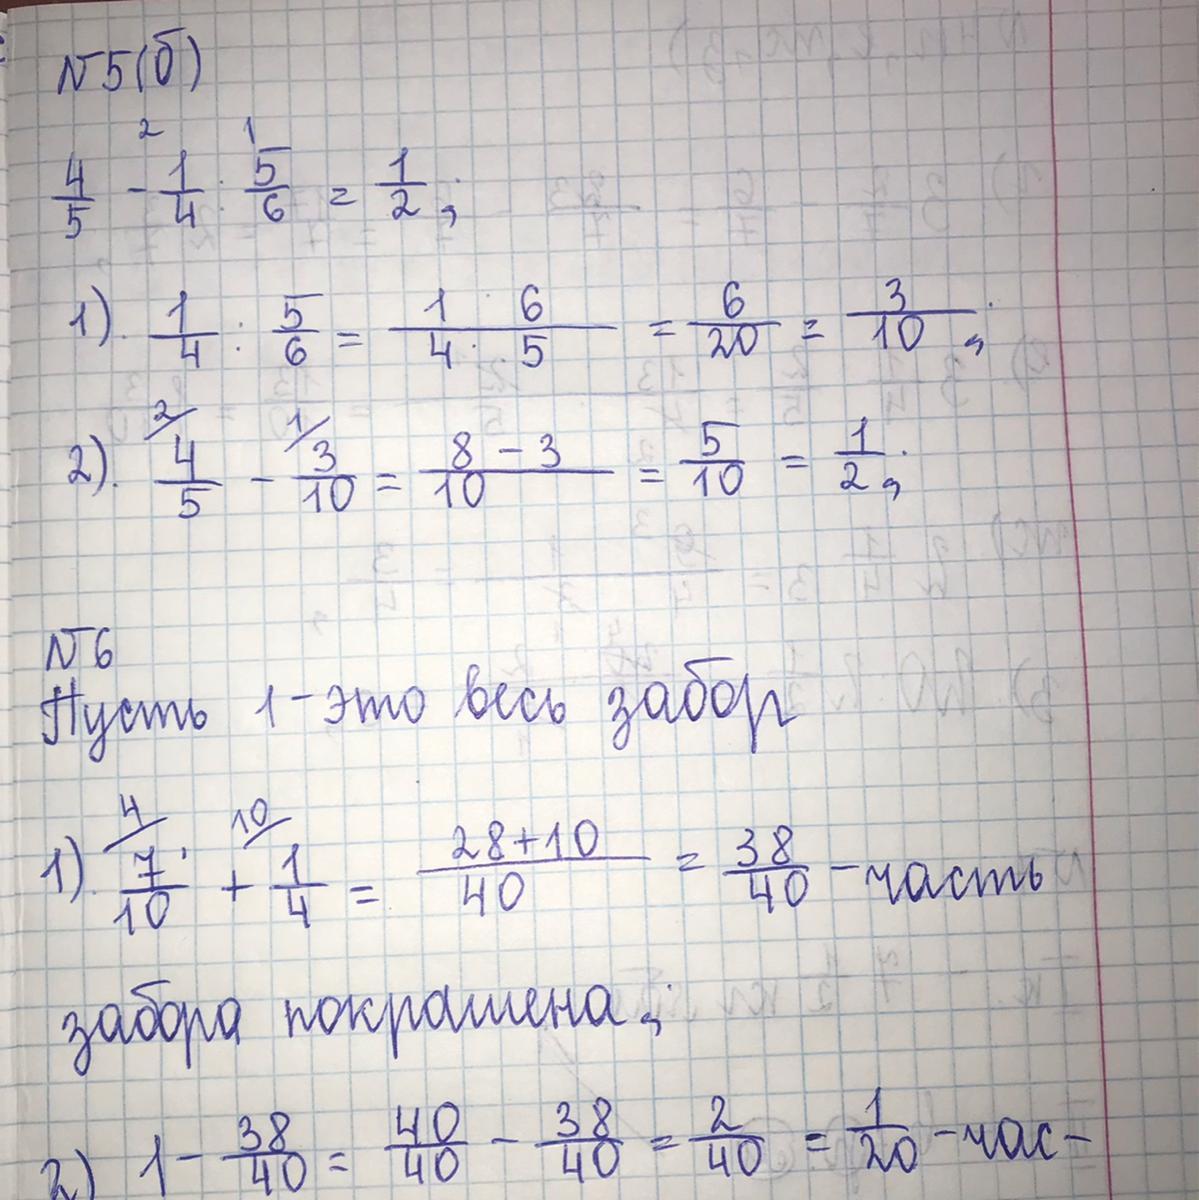 №5(б)
4/5 - 1/4 : 5/6 = 1/2;
1). 1/4 : 5/6 = 1·6/4·5 = 6/20 = 3/10;
2). 4/5 - 3/10 = 8-3/10 = 5/10 = 1/2;
№6
Пусть 1 - это весь забор
1). 7/10 + 1/4 = 28+10/40 = 38/40 - часть
забора покрашена;
2) 1 - 38/40 = 40/40 - 38/40 = 2/40 = 1/20 - час-